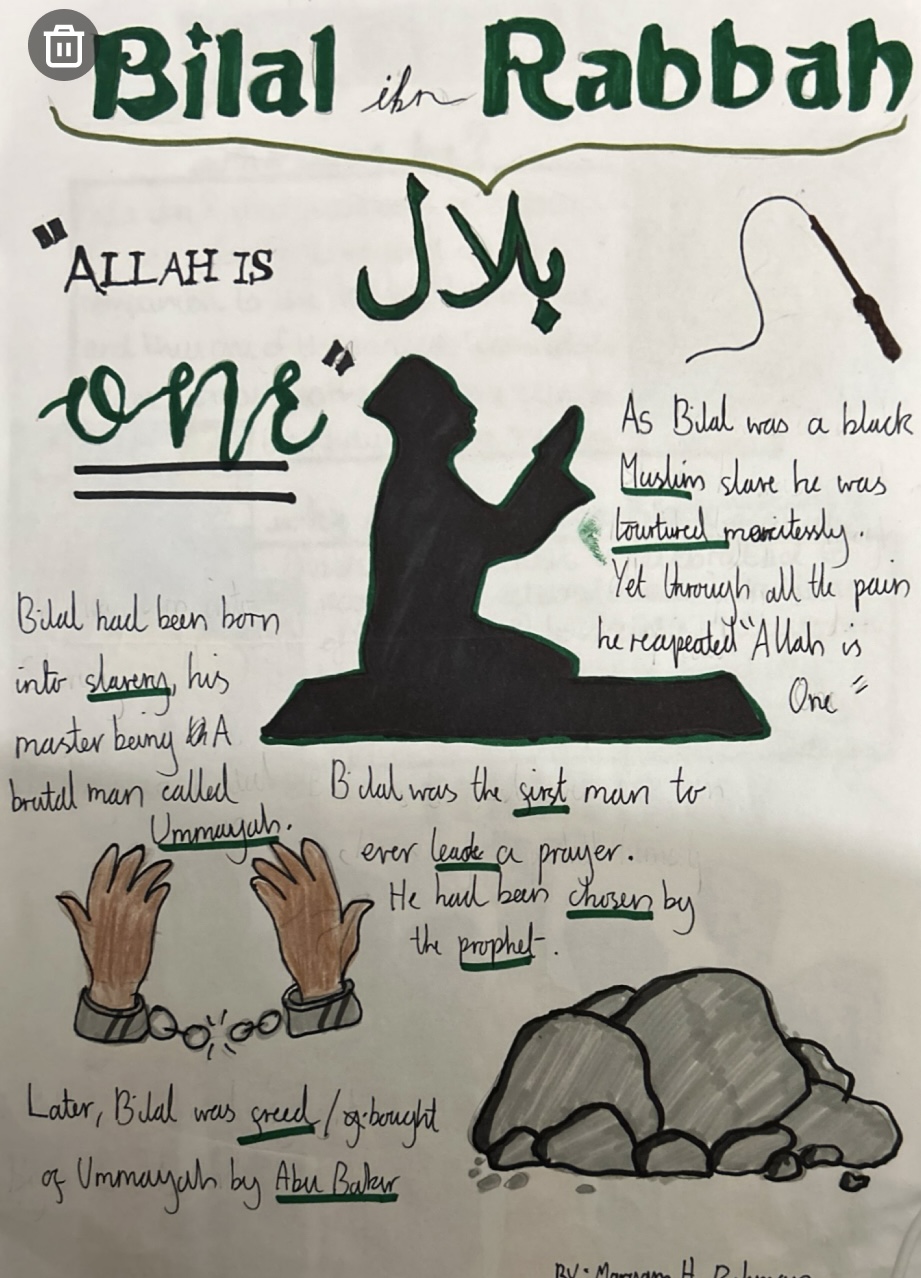 Bilal ibn Rabbah
بلال
"ALLAH IS
one"
As Bilal was a black
Muslim slave he was
tourtured mercilessly.
Yet through all the pain
he reapeated "Allah is
One"
Bilal had been born
into slavery, his
master being A
brutal man called
Ummayah.
Bilal was the first man to
ever lead a prayer.
He had been chosen by
the prophet.
Later, Bilal was freed / of-bought
of Ummayah by Abu Bakr
BY: Maryam H.